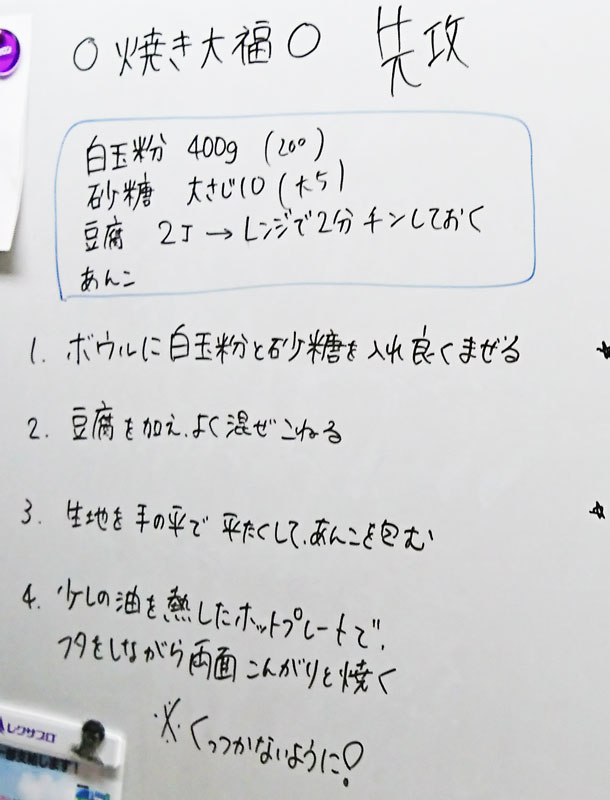 ○焼き大福○ 先攻
白玉粉 400g (200)
砂糖 大さじ10 (大5)
豆腐 2丁→レンジで2分チンしておく
あんこ
1. ボウルに白玉粉と砂糖を入れ良くまぜる
2. 豆腐を加え、よく混ぜこねる
3. 生地を手の平で平たくして、あんこを包む
4. 少しの油を熱したホットプレートで、
フタをしながら両面こんがりと焼く
※くっつかないように!
レクサプロ
支給します!